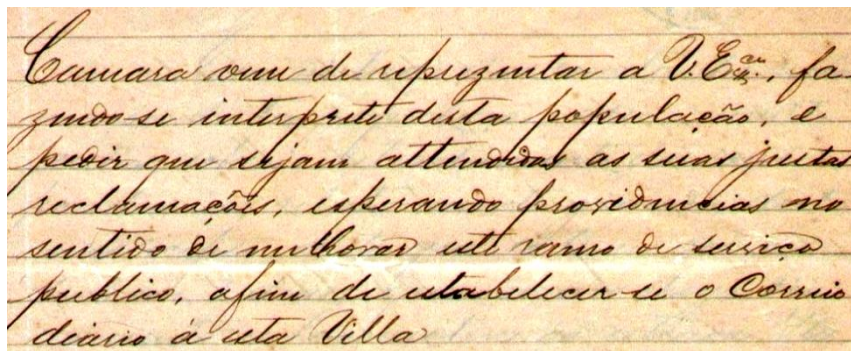 Camara vem de reprezentar a V. Ex.cia, fa-
zendo-se interprete desta população, e
pedir que sejam attendidas as suas justas
reclamações, esperando providencias no
sentido de melhorar este ramo de serviço
publico, afim de estabelecer-se o Correio
diario á esta Villa